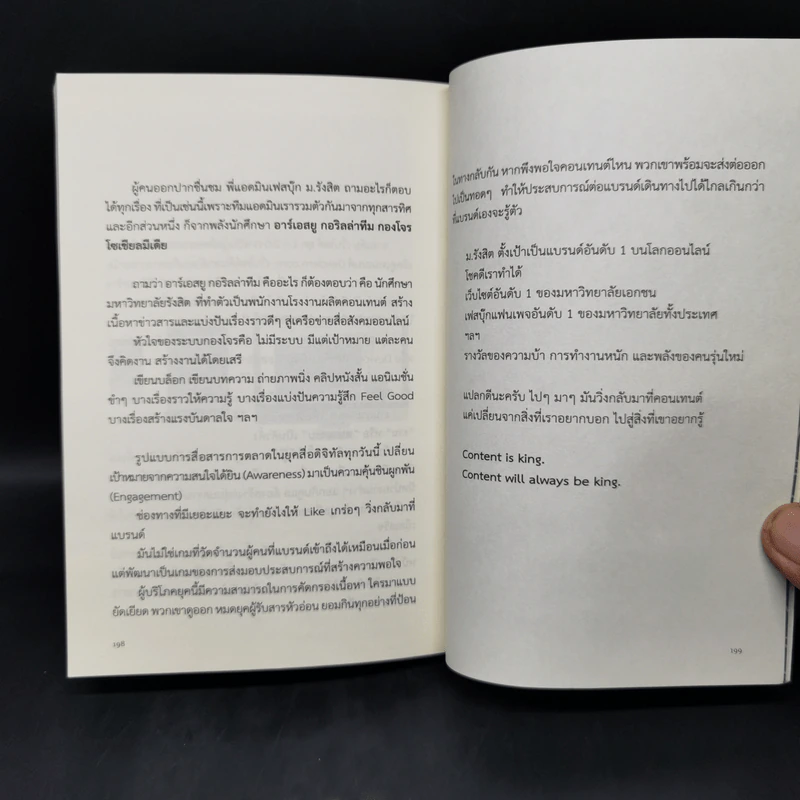 ผู้คนออกปากชื่นชม พี่แอดมินเฟสบุ๊ก ม.รังสิต ถามอะไรก็ตอบ
ได้ทุกเรื่อง ที่เป็นเช่นนี้เพราะทีมแอดมินเรารวมตัวกันมาจากทุกสารทิศ
และอีกส่วนหนึ่ง ก็จากพลังนักศึกษา อาร์เอสยู กอริลล่าทีม กองโจร
โซเชียลมีเดีย
ถามว่า อาร์เอสยู กอริลล่าทีม คืออะไร ก็ต้องตอบว่า คือ นักศึกษา
มหาวิทยาลัยรังสิต ที่ทำตัวเป็นพนักงานโรงงานผลิตคอนเทนต์ สร้าง
เนื้อหาข่าวสารและแบ่งปันเรื่องราวดีๆ สู่เครือข่ายสื่อสังคมออนไลน์
หัวใจของระบบกองโจรคือ ไม่มีระบบ มีแต่เป้าหมาย แต่ละคน
จึงคิดงาน สร้างงานได้โดยเสรี
เขียนบล็อก เขียนบทความ ถ่ายภาพนิ่ง คลิปหนังสั้น แอนิเมชั่น
ขำๆ บางเรื่องราวให้ความรู้ บางเรื่องแบ่งปันความรู้สึก Feel Good
บางเรื่องสร้างแรงบันดาลใจ ฯลฯ
รูปแบบการสื่อสารการตลาดในยุคสื่อดิจิทัลทุกวันนี้ เปลี่ยน
เป้าหมายจากความสนใจได้ยิน (Awareness) มาเป็นความคุ้นชินผูกพัน
(Engagement)
ช่องทางที่มีเยอะแยะ จะทำยังไงให้ Like เกร่อๆ วิ่งกลับมาที่
แบรนด์
มันไม่ใช่เกมที่วัดจำนวนผู้คนที่แบรนด์เข้าถึงได้เหมือนเมื่อก่อน
แต่พัฒนาเป็นเกมของการส่งมอบประสบการณ์ที่สร้างความพอใจ
ผู้บริโภคยุคนี้มีความสามารถในการคัดกรองเนื้อหา ใครมาแบบ
ยัดเยียด พวกเขาดูออก หมดยุคผู้รับสารหัวอ่อน ยอมกินทุกอย่างที่ป้อน
198
ในทางกลับกัน หากพึงพอใจคอนเทนต์ไหน พวกเขาพร้อมจะส่งต่อออก
ไปเป็นทอดๆ ทำให้ประสบการณ์ต่อแบรนด์เดินทางไปได้ไกลเกินกว่า
ที่แบรนด์เองจะรู้ตัว
ม.รังสิต ตั้งเป้าเป็นแบรนด์อันดับ 1 บนโลกออนไลน์
โชคดีเราทำได้
เว็บไซต์อันดับ 1 ของมหาวิทยาลัยเอกชน
เฟสบุ๊กแฟนเพจอันดับ 1 ของมหาวิทยาลัยทั้งประเทศ
ฯลฯ
รางวัลของความบ้า การทำงานหนัก และพลังของคนรุ่นใหม่
แปลกดีนะครับ ไปๆ มาๆ มันวิ่งกลับมาที่คอนเทนต์
แค่เปลี่ยนจากสิ่งที่เราอยากบอก ไปสู่สิ่งที่เขาอยากรู้
Content is king.
Content will always be king.
199